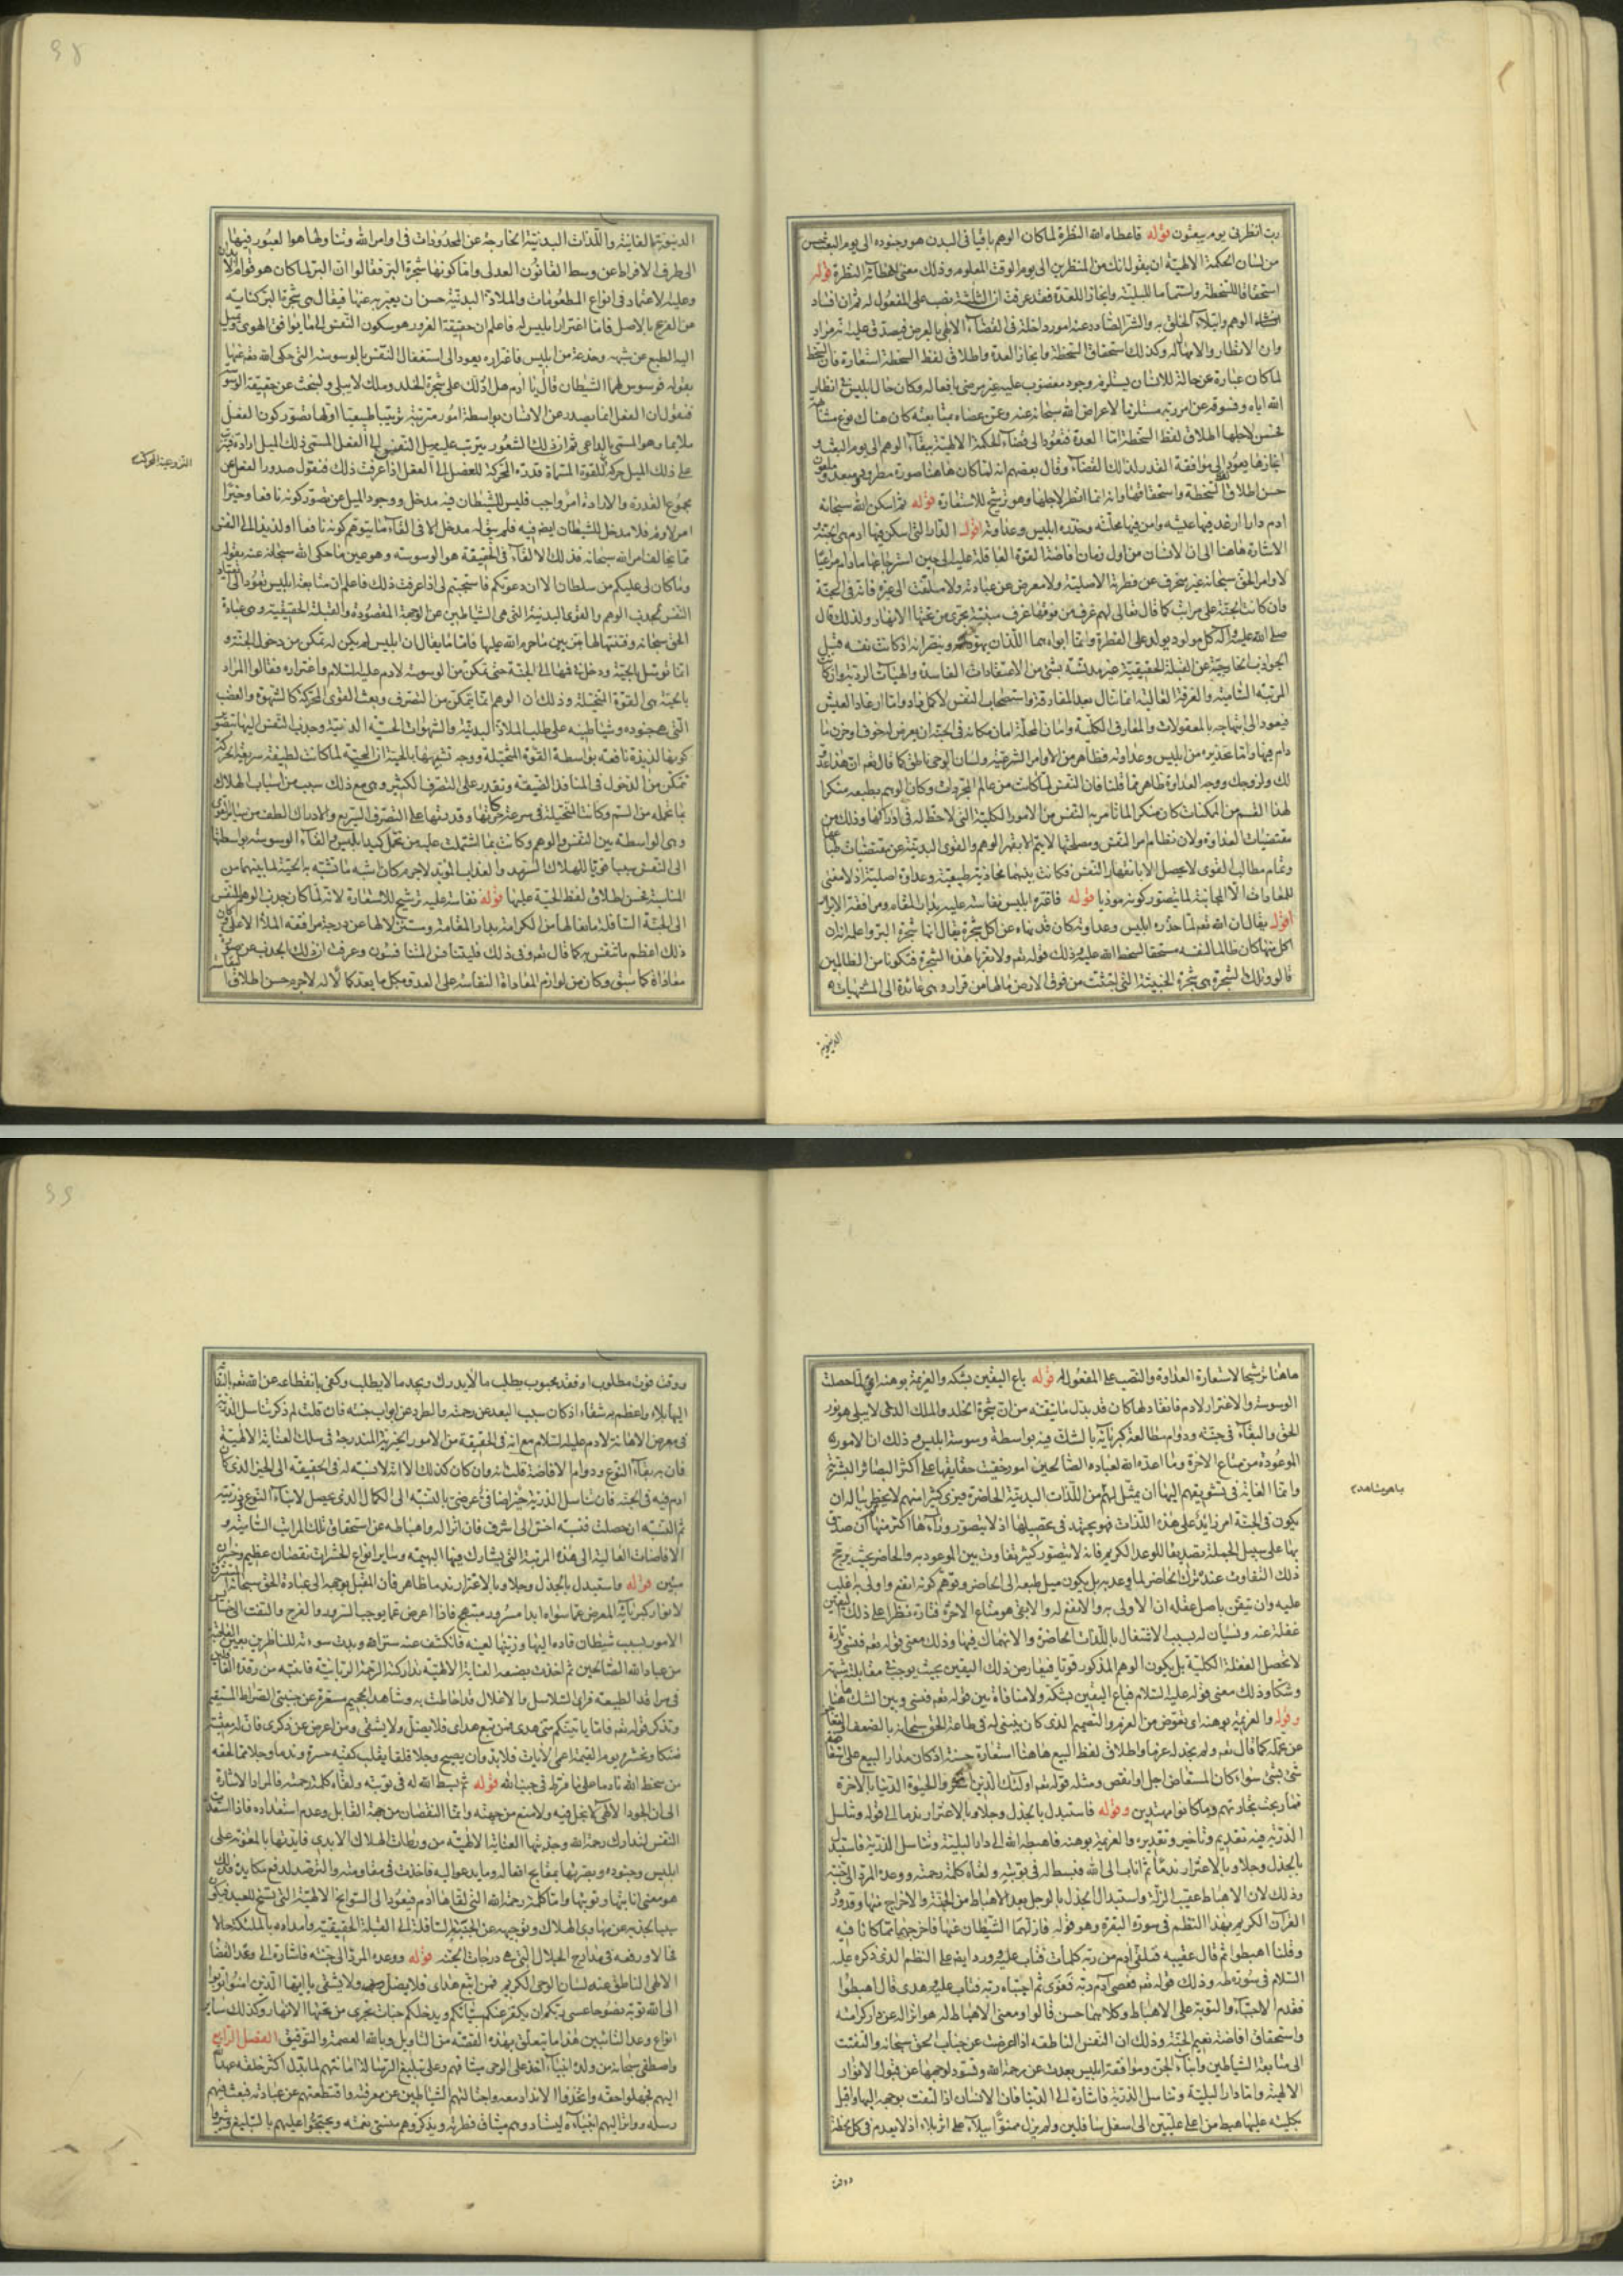 رب انظرنى يوم يبعثون قوله فاعطاه الله النظرة لما كان الوهم باقيا فى البدن هو وجنوده الى يوم البعث حسن
من لسان الحكمة الالهية ان يقول انك من المنظرين الى يوم الوقت المعلوم وذلك معنى اعطائه النظرة قوله
استحقاقا للسخطة واستتماما للبلية وانجازا للعدة فقد عرفت ان الثلثة نصب على المفعول له ثم ان افساد
الوهم وابتلاء الخلق به والشر الصادر عنه امور داخلة فى القضاء الالهى بالعرض فيصدق عليه انه مراد
وان الانظار والامهال له وكذلك استحقاق السخطة وانجاز العدة واطلاق لفظ السخطة استعارة فان السخط
لما كان عبارة عن حالة للانسان يستلزم وجود مغضوب عليه غير مرضى بافعاله وكان حال ابليس فى انظار
الله اياه وفسوقه عن امر ربه مستلزما لاعراض الله سبحانه عنه وعمن عصاه بمتابعته كان هناك نوع مشابهة
فحسن لاجلها اطلاق لفظ السخطة اما العدة فتعود الى قضاء الحكمة الالهية ببقاء الوهم الى يوم البعث و
انجازها يعود الى موافقة القدر لذلك القضاء وقال بعضهم انه لما كان هاهنا صورة مطرود ومبعد وملعون
حسن اطلاق لفظ السخطة واستحقاقها وانه انما انظر لاجلها وهو ترشيح للاستعارة قوله ثم اسكن الله سبحانه
ادم دارا ارغد فيها عيشه وامن فيها محلته وحذره ابليس وعداوته اقول الدار التى اسكن فيها ادم هى الجنة
الاشارة هاهنا الى ان الانسان من اول زمان افاضة القوة العاقلة عليه الى حين استرجاعها ما دام مراعيا
لاوامر الحق سبحانه غير منحرف عن فطرته الاصلية ولا معرض عن عبادته ولا ملتفت الى غيره فانه فى الجنة
وان كانت الجنة على مراتب كما قال تعالى لهم غرف من فوقها غرف مبنية تجرى من تحتها الانهار ولذلك قال
صلى الله عليه واله كل مولود يولد على الفطرة وانما ابواه هما اللذان يهودانه وينصرانه اذ كانت نفسه قبل
الجواذب الخارجية عن القبلة الحقيقية غير مدنسة بشئ من الاعتقادات الفاسدة والهيئات الردية وان كان
المرتبة السامية والغرفة العالية انما تنال بعد المفارقة واستصحاب النفس لاكمل زاد واما ارغاد العيش
فيعود الى ابتهاجه بالمعقولات والمعارف الكلية وامان المحلة امان مكانه فى الجنة ان يعرض له خوف او حزن ما
دام فيها واما تحذيره من ابليس وعداوته فظاهر من الاوامر الشرعية ولسان الوحى ناطق كما قال تعم ان هذا عدو
لك ولزوجك ووجه العداوة ظاهر مما قلنا فان النفس لما كانت من عالم المجردات وكان الوهم بطبعه منكرا
لهذا القسم من الممكنات كان منكرا لما تامر به النفس من الامور الكلية التى لا حظ له فى ادراكها وذلك من
مقتضيات العداوة ولان نظام امر النفس ومصلحتها لا يتم الا بقهر الوهم والقوى البدنية عن مقتضيات طباعها
وتمام مطالب القوى لا يحصل الا بانقهار النفس فكانت بينهما مجاذبة طبيعية وعداوة اصلية اذ لا معنى
للمعاداة الا المجانبة لما يتصور كونه موذيا قوله فاغتره ابليس نفاسة عليه بدار المقام ومرافقة الابرار
اقول يقال ان الله تعم لما حذره ابليس وعداوته كان قد نهاه عن اكل شجرة يقال انها شجرة البر واعلمه انه ان
اكل منها كان ظالما لنفسه مستحقا لسخط الله عليه وذلك قوله تعم ولا تقربا هذه الشجرة فتكونا من الظالمين
قالو وتلك الشجرة هى شجرة الخبيثة التى اجتثت من فوق الارض ما لها من قرار وهى عائدة الى المشتهيات
الدنيوية
الدنيوية الفانية واللذات البدنية الخارجة عن المحدودات فى اوامر الله وتناولها هو العبور فيها
الى طرف الافراط عن وسط القانون العدلى واما كونها شجرة البر فقالوا ان البر لما كان هو قوام الابدان
وعليه الاعتماد فى انواع المطعومات والملاذ البدنية حسن ان يعبر به عنها فيقال هى شجرة البر كناية
عن الفرع بالاصل فاما اغترار ابليس له فاعلم ان حقيقة الغرور هو سكون النفس الى ما يوافق الهوى وتميل
اليه الطبع عن شبهة وخدعة من ابليس فاغتراره يعود الى استغفال النفس بالوسوسة التى حكى الله تعم عنها
بقوله فوسوس لهما الشيطان قال يا ادم هل ادلك على شجرة الخلد وملك لا يبلى ولنبحث عن حقيقة الوسوسة
فنقول ان الفعل انما يصدر عن الانسان بواسطة امور مترتبة ترتيبا طبيعيا اولها تصور كون الفعل
ملايما وهو المسمى بالداعى ثم ان ذلك الشعور يترتب عليه ميل النفس الى الفعل المسمى ذلك الميل ارادة فيترتب
على ذلك الميل حركة القوة المسماة قدرة المحركة للعضل الى الفعل اذا عرفت ذلك فنقول صدور الفعل عن
القدرة عند المحركة
مجموع القدرة والارادة امر واجب فليس للشيطان فيه مدخل ووجود الميل عن تصور كونه نافعا وخيرا
امر لازم فلا مدخل للشيطان ايضا فيه فلم يبق له مدخل الا فى القاء ما يتوهم كونه نافعا او لذيذا الى النفس
مما يخالف امر الله سبحانه فذلك الالقاء فى الحقيقة هو الوسوسة وهو عين ما حكى الله سبحانه عنه بقوله
وما كان لى عليكم من سلطان الا ان دعوتكم فاستجبتم لى اذا عرفت ذلك فاعلم ان متابعة ابليس تعود الى انقياد
النفس لجذب الوهم والقوى البدنية التى هى الشياطين عن الوجهة المقصودة والقبلة الحقيقية وهى عبادة
الحق سبحانه وفتنتها لها بتزيين ما حرم الله عليها فاما ما يقال ان ابليس لم يكن له تمكن من دخول الجنة و
انما توسل بالحية ودخل فى فمها الى الجنة حتى تمكن من الوسوسة لادم عليه السلام واغتراره فقالوا المراد
بالحية هى القوة المتخيلة وذلك ان الوهم انما يتمكن من التصرف وبعث القوى المحركة كالشهوة والغضب
التى هى جنوده وشياطينه على طلب الملاذ البدنية والشهوات الحسية الدنية وجذب النفس اليها بتصور
كونها لذيذة نافعة بواسطة القوة المتخيلة ووجه تشبيهها بالحية ان الحية لما كانت لطيفة سريعة الحركة
تتمكن من الدخول فى المنافذ الضيقة وتقدر على التصرف الكثير وهى مع ذلك سبب من اسباب الهلاك
بما تحمله من السم وكانت المتخيلة فى سرعة حركاتها وقدرتها على التصرف السريع والادراك الطف من سائر القوى
وهى الواسطة بين النفس والوهم وكانت بما اشتملت عليه من تحمل كيد ابليس والقاء الوسوسة بواسطتها
الى النفس سببا قويا للهلاك السرمد والعذاب المؤبد لاجرم كان اشبه ما تشبه به الحية لما بينهما من
المناسبة فحسن اطلاق لفظ الحية عليها قوله نفاسة عليه ترشيح للاستعارة لانه لما كان جذب الوهم للنفس
الى الجنبة السافلة مانعا لها من الكرامة بدار المقامة ومستنزلا لها عن درجة مرافقة الملاء الاعلى كان
ذلك اعظم ما يتنفس به كما قال تعم وفى ذلك فليتنافس المتنافسون وعرفت ان ذلك الجذب عن
معاداة كما سبق وكان من لوازم المعاداة النفاسة على العدو بكل ما يعد كمالا له لاجرم حسن اطلاق النفاسة
هاهنا ترشيحا لاستعارة العداوة والنصب على المفعول له قوله باع اليقين بشكه والعزيمة بوهنه اى لما حصلت
الوسوسة والاغترار لادم فانقاد لها كان قد بدل ما يتقنه من ان شجرة الخلد والملك الذى لا يبلى هو نور
الحق والبقاء فى جنته ودوام مطالعة كبريائه بالشك فيه بواسطة وسوسة ابليس وذلك ان الامور
الموعودة من متاع الاخرة وما اعده الله لعباده الصالحين امور خفيت حقايقها على اكثر البصائر البشرية
وانما الغاية فى تشويقهم اليها ان يمثل لهم من اللذات البدنية الحاضرة فيرى كثيرا منهم لا يخطر بباله ان
باهو مشاهد
يكون فى الجنة امر زائد على هذه اللذات فهو يجتهد فى تحصيلها اذ لا يتصور وراءها اكثر منها ثم ان صدق
بها على سبيل الجملة تصديقا للوعد الكريم فانه لا يتصور كثير تفاوت بين الموعود به والحاضر بحيث يرجح
ذلك التفاوت عنده ترك الحاضر لما وعد به بل يكون ميل طبعه الى الحاضر وتوهم كونه انفع واولى به اغلب
عليه وان تيقن باصل عقله ان الاولى به والانفع له والابقى هو متاع الاخرة فتارة يطرا على ذلك اليقين
غفلة عنه ونسيان له بسبب الاشتغال باللذات الحاضرة والانهماك فيها وذلك معنى قوله تعم فنسى وتارة
لا تحصل الغفلة الكلية بل يكون الوهم المذكور قويا فيعارض ذلك اليقين بحيث يوجب فى مقابلته شبهة
وشكا وذلك معنى قوله عليه السلام فباع اليقين بشكه ولا منافاة بين قوله تعم فنسى وبين الشك هاهنا
وقوله والعزيمة بوهنه اى تعوض من العزم والتصميم الذى كان ينبغى له فى طاعة الحق سبحانه بالضعف
عن تحمله كما قال تعم ولم نجد له عزما واطلاق لفظ البيع هاهنا استعارة حسنة اذ كان مدار البيع على استعاضة
شئ بشئ سواء كان المستعاض اجل او انقص ومثله قوله تعم اولئك الذين اشتروا الحيوة الدنيا بالاخرة
فما ربحت تجارتهم وما كانوا مهتدين وقوله فاستبدل بالجذل وجلا وبالاغترار ندما الى قوله وتناسل
الذرية فيه تقديم وتاخير وتقديره والعزيمة بوهنه فاهبطه الله الى دار البلية وتناسل الذرية فاستبدل
بالجذل وجلا وبالاغترار ندما ثم اناب الى الله فبسط له فى توبته ولقاه كلمة رحمته ووعده المرد الى جنته
وذلك لان الاهباط عقيب الزلة واستبدال الجذل بالوجل بعد الاهباط من الجنة والاخراج منها وقد ورد
القران الكريم بهذا النظم فى سورة البقرة وهو قوله فازلهما الشيطان عنها فاخرجهما مما كانا فيه
وقلنا اهبطوا ثم قال عقيبه فتلقى ادم من ربه كلمات فتاب عليه وورد ايضا على النظم الذى ذكره عليه
السلام فى سورة طه وذلك قوله تعم فعصى ادم ربه فغوى ثم اجتباه ربه فتاب عليه وهدى قال اهبطوا
فقدم الاجتباء والتوبة على الاهباط وكلاهما حسن قالوا ومعنى الاهباط له هو انزاله عن دار كرامته
واستحقاق افاضة نعيم الجنة وذلك ان النفس الناطقة اذا اعرضت عن جناب الحق سبحانه والتفتت
الى متابعة الشياطين وابناء الجن وموافقة ابليس بعدت عن رحمة الله وتسود لوجهها عن قبول الانوار
الالهية واما دار البلية وتناسل الذرية فاشارة الى الدنيا فان الانسان اذا التفت بوجهه اليها واقبل
بكليته عليها هبط من اعلى عليين الى اسفل سافلين ولم يزل ممنوا ببلاء على اثر بلاء اذ لا يعدم فى كل لحظة
ووقت
ووقت فوت مطلوب او فقد محبوب يطلب ما لا يدرك ويجد ما لا يطلب وكفى بانقطاعه عن الله تعم بالتفاته
اليها بلاء واعظم به شقاء اذ كان سبب البعد عن رحمته والطرد عن ابواب جنته فان قلت لم ذكر تناسل الذرية
فى معرض الاهانة لادم عليه السلام مع انه فى الحقيقة من الامور الخيرية المندرجة فى سلك العناية الالهية
فان به بقاء النوع ودوام الافاضة قلت انه وان كان كذلك الا انه لا نسبة له فى الحقيقة الى الخير الذى كان
ادم فيه فى الجنة فان تناسل الذرية خير اضافى عرضى بالنسبة الى الكمال الذى يحصل لابناء النوع ذريته
ثم النسبة ان حصلت فنسبة اخس الى اشرف فان انزاله واهباطه عن استحقاق تلك المراتب السامية و
الافاضات العالية الى هذه المرتبة التى يشارك فيها البهيمة وساير انواع الحشرات نقصان عظيم وخسران
مبين قوله واستبدل بالجذل وجلا وبالاغترار ندما ظاهر فان المقبل بوجهه الى عبادة الحق سبحانه المستشرق
لانوار كبريائه المعرض عما سواه ابدا مسرور مبتهج فاذا اعرض عما يوجب السرور والفرح والتفت الى خسائس
الامور بسبب شيطان قاده اليها وزينها لعينه فانكشف عنه ستر الله وبدت سوءته للناظرين بعين القلوب
من عباد الله الصالحين ثم اخذت بضبعه العناية الالهية بتداركته الرحمة الربانية فانتبه من رقدة الغافلين
فى مراقد الطبيعة فراى السلاسل والاغلال قد احاطت به وشاهد الجحيم مستعرة عن جنبتى الصراط المستقيم
وتذكر قوله تعم فاما ياتينكم منى هدى فمن تبع هداى فلا يضل ولا يشقى ومن اعرض عن ذكرى فان له معيشة
ضنكا ونحشره يوم القيمة اعمى الايات فلا بد وان يصبح وجلا قلقا يقلب كفيه حسرة وندما وجلا مما لحقه
من سخط الله نادما على ما فرط فى جنب الله قوله ثم بسط الله له فى توبته ولقاه كلمة رحمته فالمراد الاشارة
الى ان الجود الالهى لا بخل فيه ولا منع من جهته وانما النقصان من جهة القابل وعدم استعداده فاذا استعدت
النفس لتدارك رحمة الله وجذبتها العناية الالهية من ورطات الهلاك الابدى فايدتها بالمعونة على
ابليس وجنوده وبصرتها بمقابح افعاله وما يدعوا اليه فاخذت فى مقاومته والترصد لدفع مكايده فذلك
هو معنى انابتها وتوبتها واما كلمة رحمة الله التى لقاها ادم فيعود الى السوانح الالهية التى تسنح للعبد فيكون
سببا لجذبه عن مهاوى الهلاك وتوجيهه عن الجنبة السافلة الى القبلة الحقيقية وامداده بالملئكة حالا
فحالا ورفعه فى مدارج الجلال التى هى درجات الجنة قوله ووعده المرد الى جنته فاشارة الى وعد القضاء
الالهى الناطق عنه لسان الوحى الكريم فمن اتبع هداى فلا يضل ولا يشقى يا ايها الذين امنوا توبوا
الى الله توبة نصوحا عسى ربكم ان يكفر عنكم سيئاتكم ويدخلكم جنات تجرى من تحتها الانهار وكذلك ساير
انواع وعد التائبين هذا ما يتعلق بهذه القصة من التاويل وبالله العصمة والتوفيق الفصل الرابع
واصطفى سبحانه من ولده انبياء اخذ على الوحى ميثاقهم وعلى تبليغ الرسالة امانتهم لما بدل اكثر خلقه عهد الله
اليهم فجهلوا حقه واتخذوا الانداد معه واجتالتهم الشياطين عن معرفته واقتطعتهم عن عبادته فبعث فيهم
رسله وواتر اليهم انبياءه ليستادوهم ميثاق فطرته ويذكروهم منسى نعمته ويحتجوا عليهم بالتبليغ ويثيروا